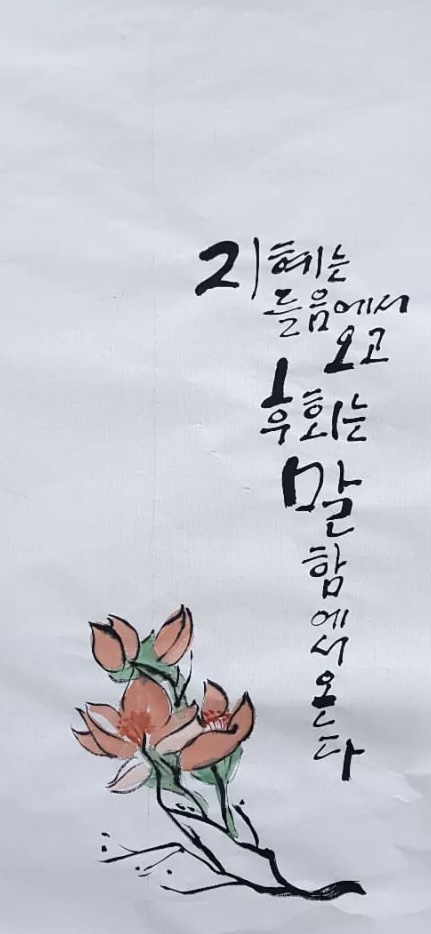 지혜는
들음에서
오고
후회는
말
함
에
서
온
다